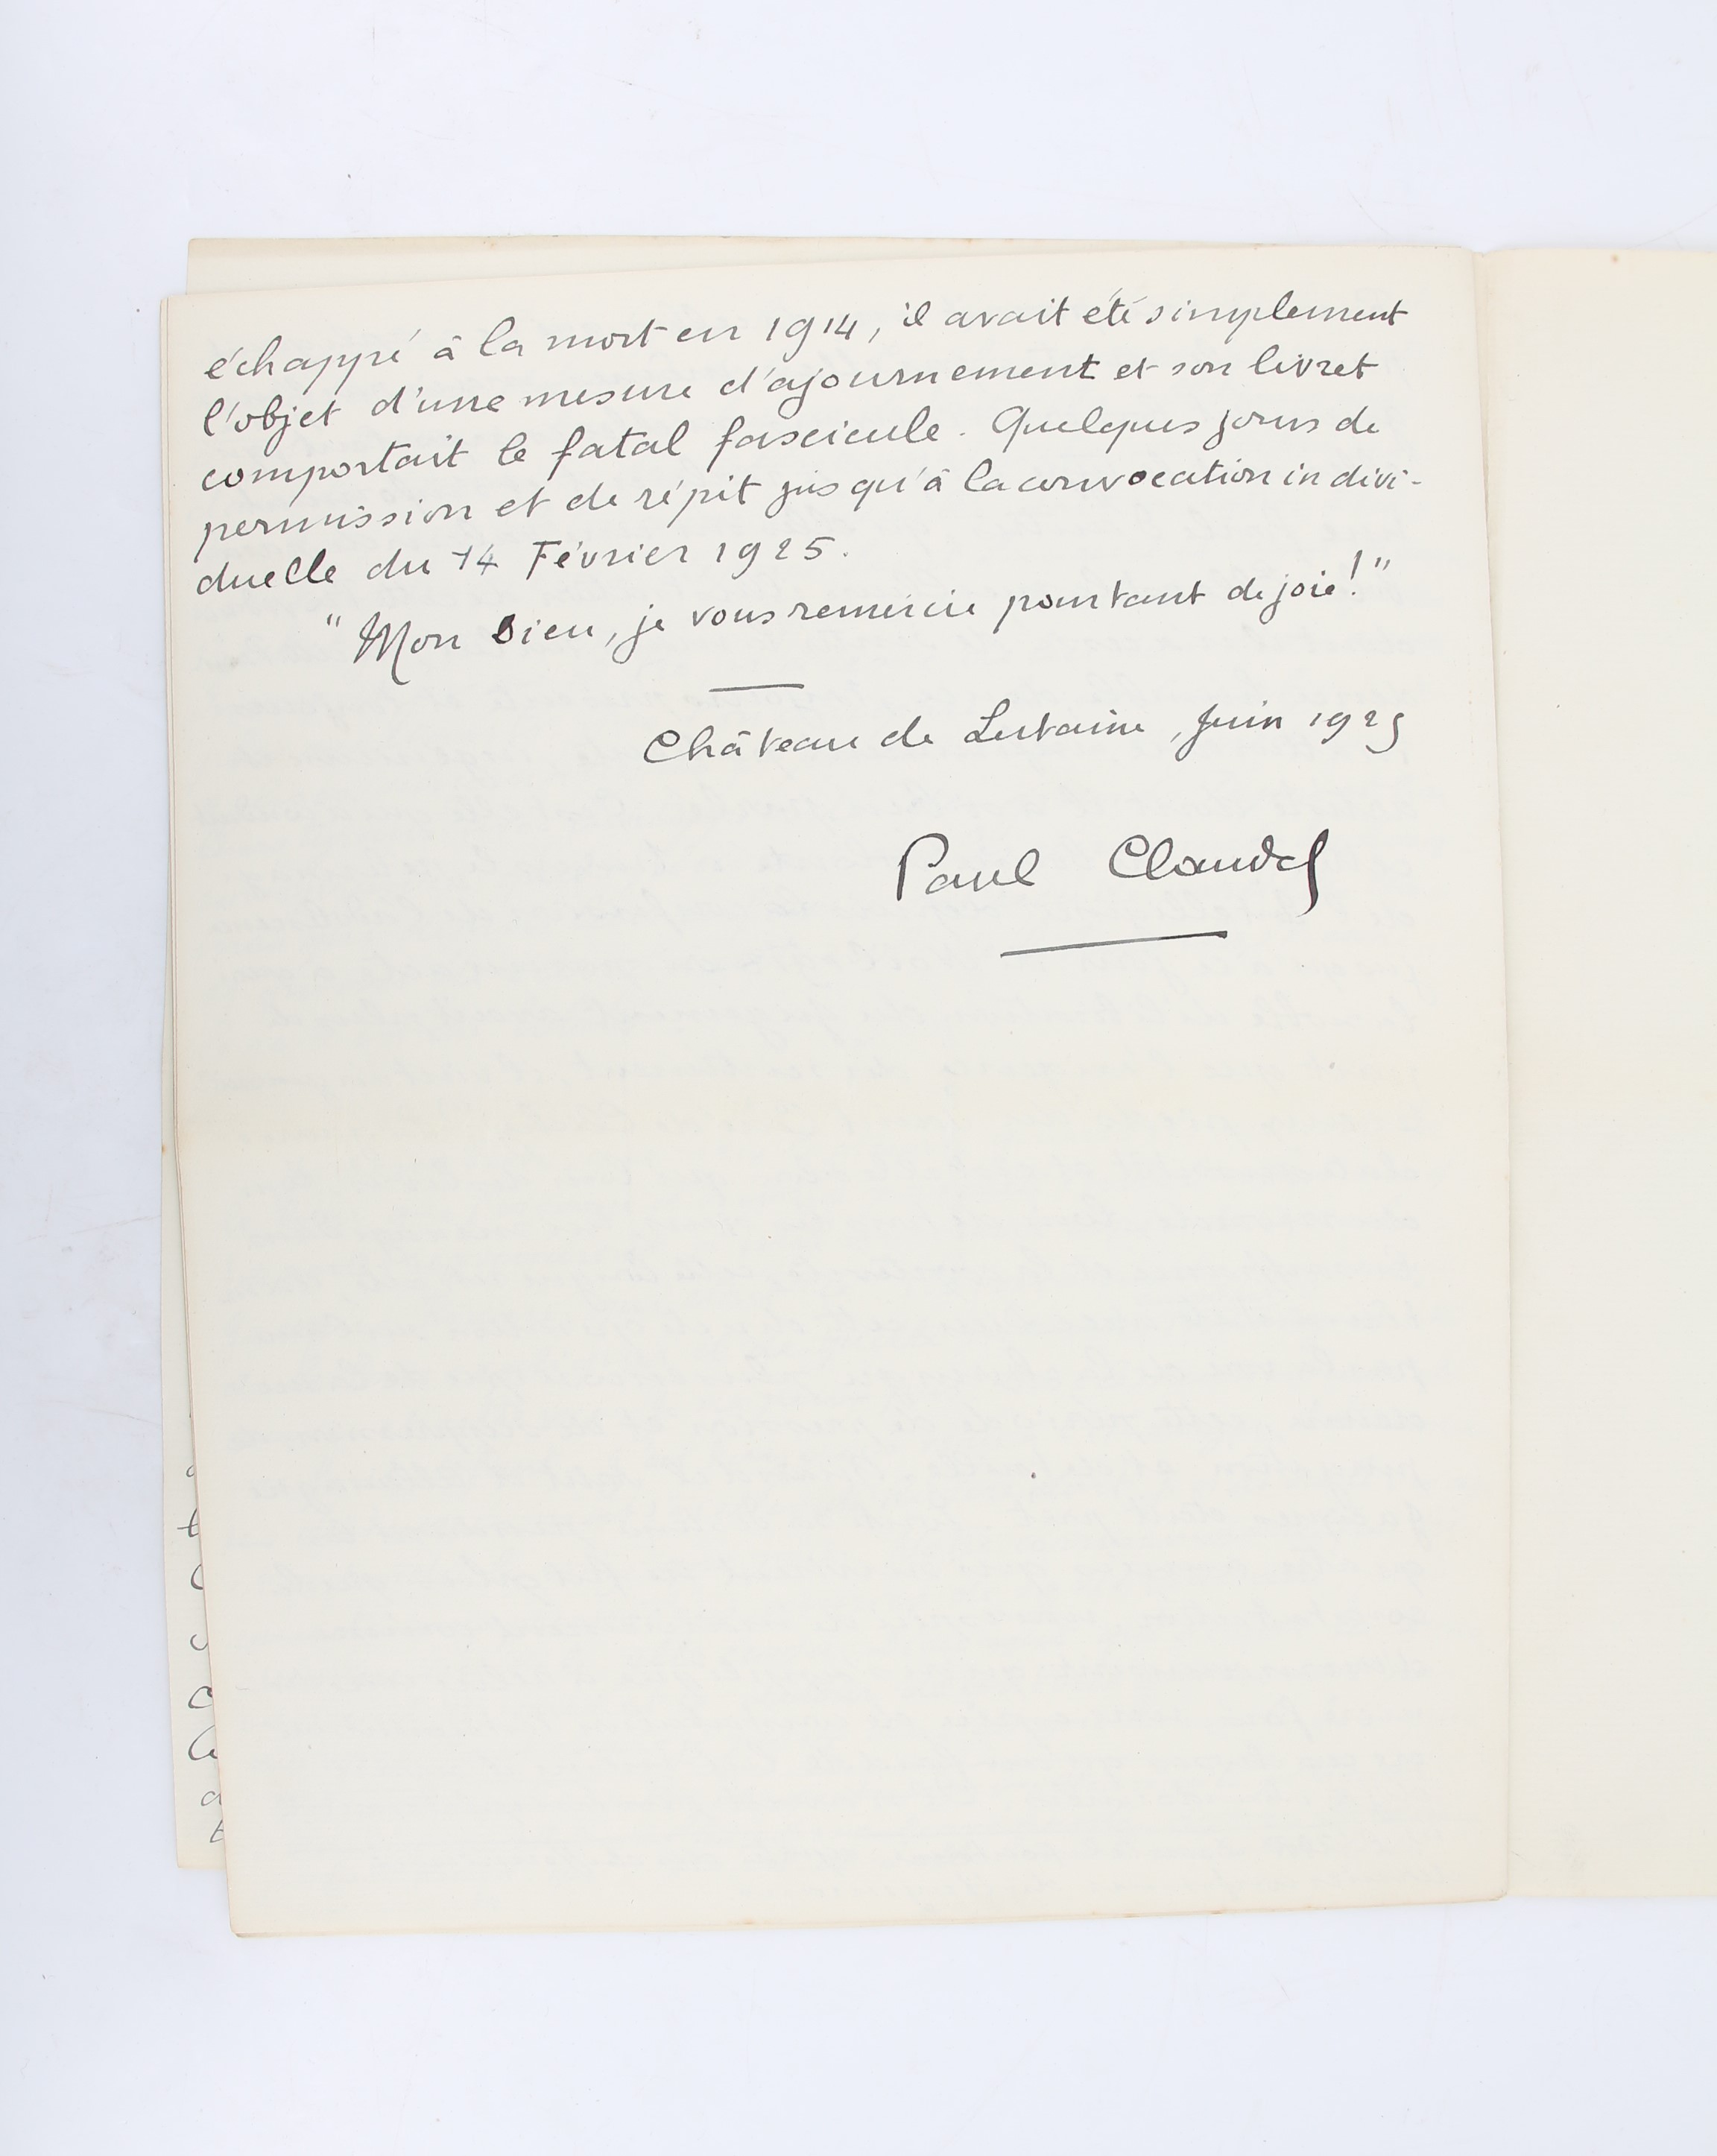 échappé à la mort en 1914, il avait été simplement
l'objet d'une mesure d'ajournement et son livret
comportait le fatal fascicule. Quelques jours de
permission et de répit jusqu'à la convocation indivi-
duelle du 14 Février 1925.
"Mon Dieu, je vous remercie pourtant de joie!"
Château de Lutaine, Juin 1925
Paul Claudel